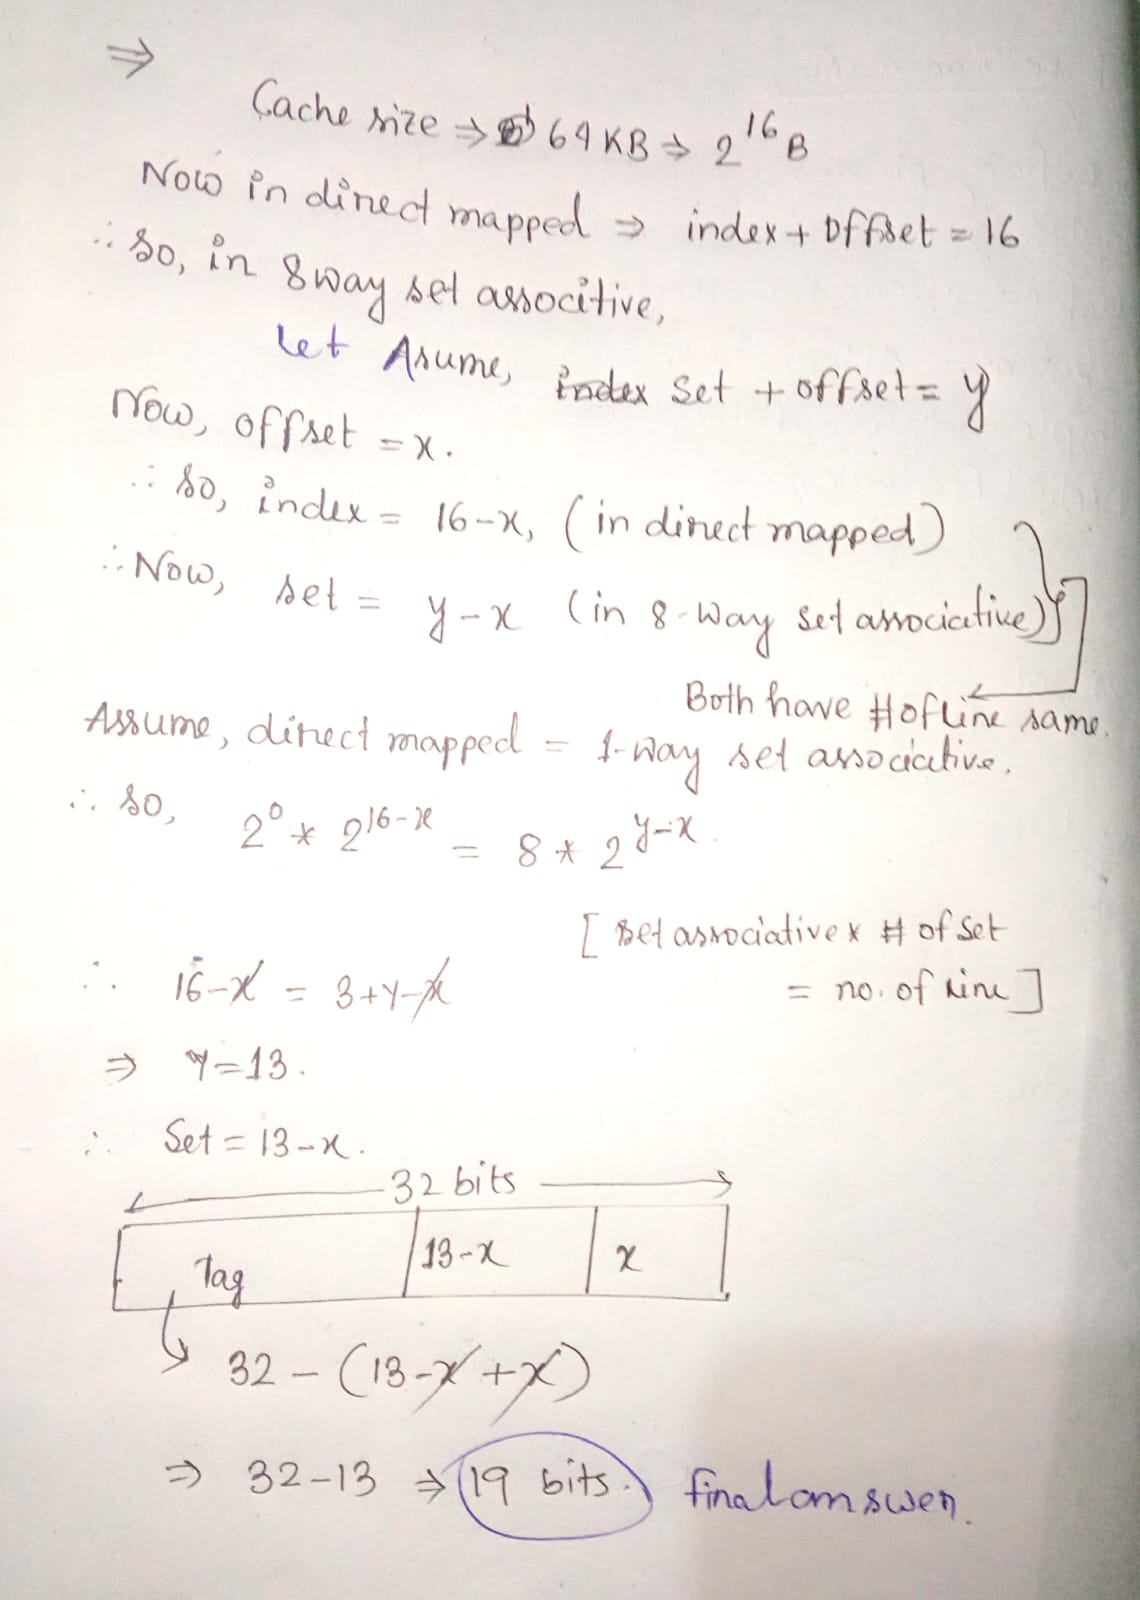 ⇒
Cache size ⇒ 64 KB ⇒ 2^16 B
Now in direct mapped ⇒ index + Offset = 16
∴ So, in 8 way set associtive,
let Asume, index Set + offset = y
Now, offset = x.
∴ So, index = 16-x, (in direct mapped)
∴ Now, set = y-x (in 8-way set associative)
Both have # of line same.
Assume, direct mapped = 1-way set associative.
∴ So, 2^0 * 2^16-x = 8 * 2^y-x
[set associative x # of set
= no. of line]
∴ 16-x = 3+y-x
⇒ y=13.
∴ Set = 13-x.
32 bits
Tag 13-x x
32 - (13-x+x)
⇒ 32-13 ⇒ 19 bits. final answer.